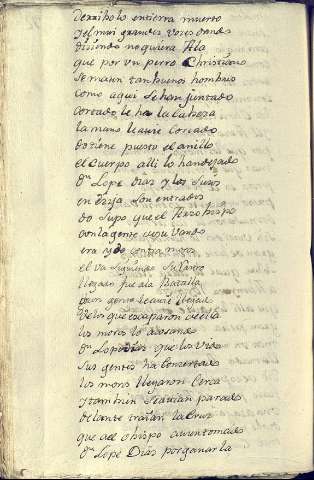 Derribolo en tierra muerto
del mur grandes voces dando
diziendo no quiera Ala
que por un perro Christiano
se maten tan buenos hombres
como aqui se han juntado
cortado le ha la cabeza
la mano le avie cortado
do tiene puesto el anillo
el cuerpo alli lo han dejado
Dn Lope Dias y los suyos
en son entrados
do supo que el Arzobispo
con la gente de su vando
era ydo con los moros
el va siguiendo su
llegado fue a la batalla
de los que escaparon della
los moros lo
Dn Lope Dias que los vido
sus gentes ha concertado
los moros llegaron cerca
y tambien se avian parado
delante traian la Cruz
que al obispo avien tomado
Dn Lope Dias por ganarla